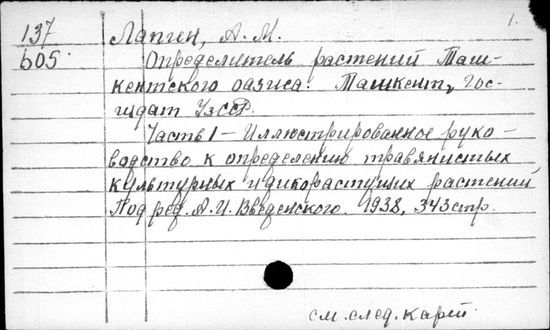 1.
137 Лапген, А. М.
b05 Определитель растений Таш-
кентского оазиса. Ташкент, Гос-
издат УзССР.
Часть 1 – Иллюстрированное руко-
водство к определению травянистых
культурных и дикорастущих растений
Под ред. А. И. Введенского. 1938, 343 стр.
см. след. карт.